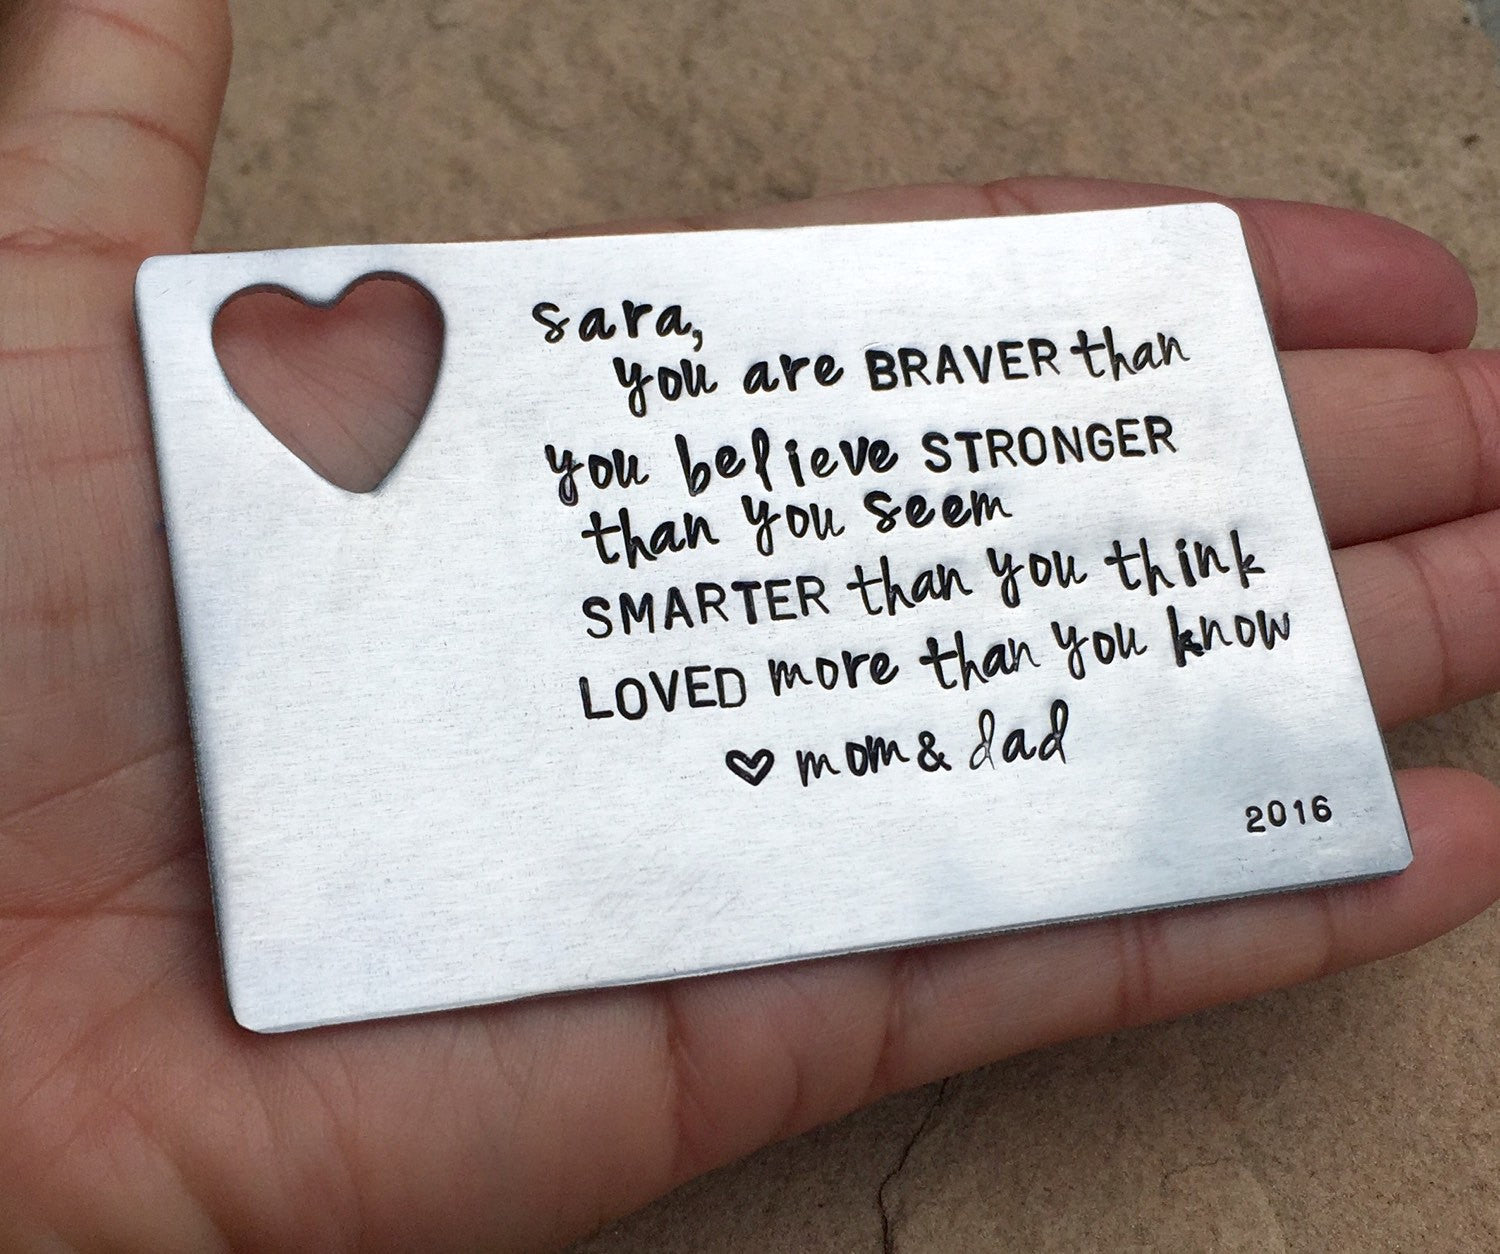 sara,
you are BRAVER than
you believe STRONGER
than you seem
SMARTER than you think
LOVED more than you know
♡ mom & dad
2016